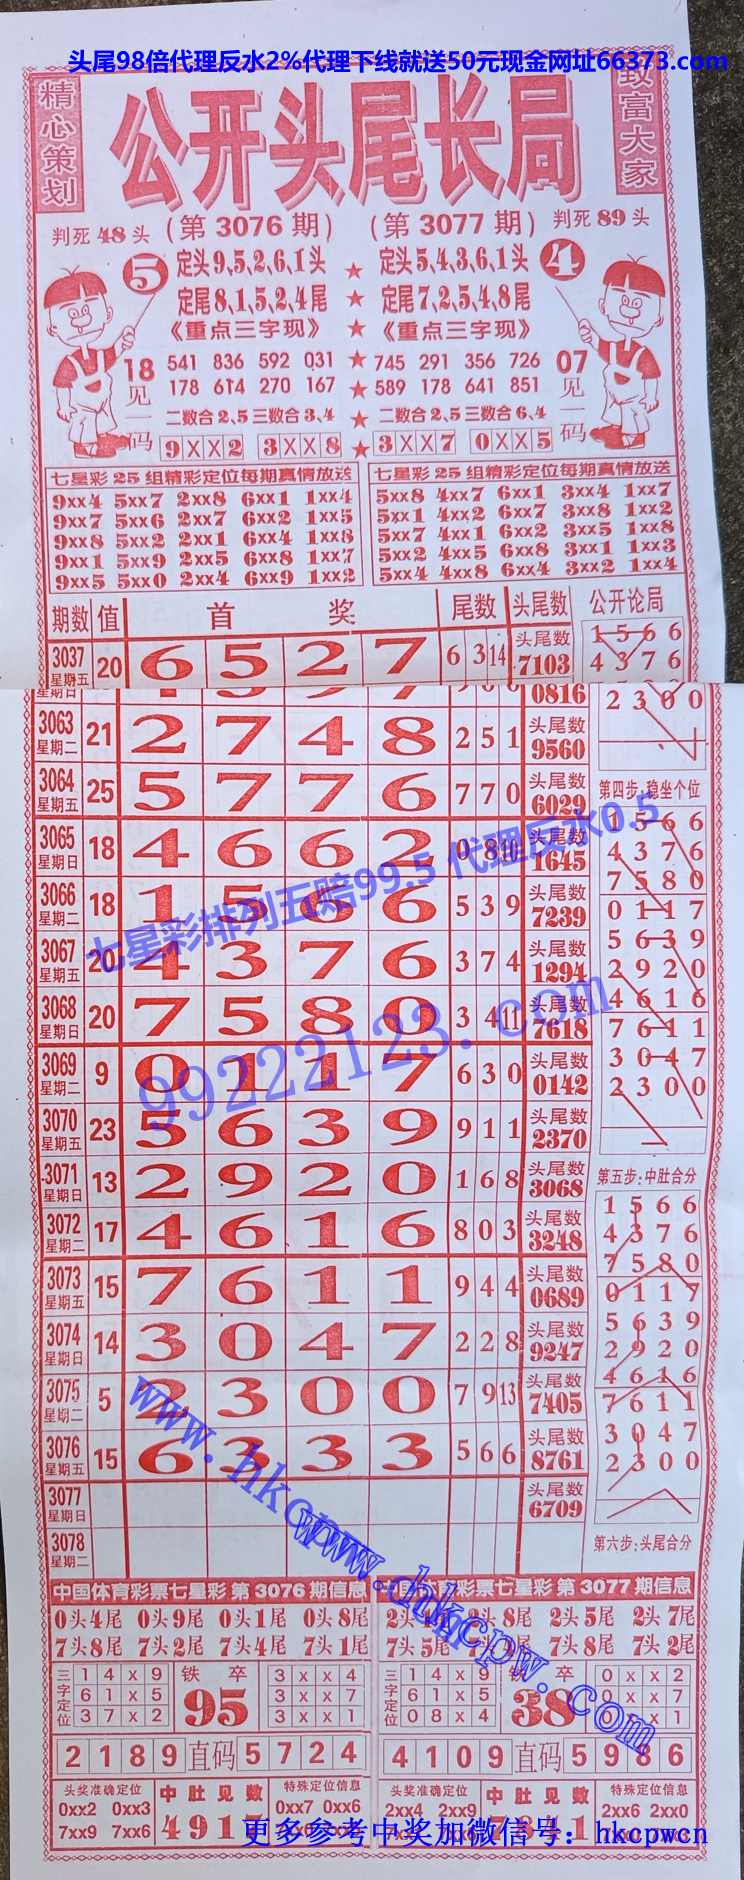 头尾98倍代理反水2%代理下线就送50元现金网址66373.com
精心策划
公开头尾长局
致富大家
判死48头 (第3076期) (第3077期) 判死89头
5 定头9,5,2,6,1头 ★ 定头5,4,3,6,1头 4
定尾8,1,5,2,4尾 ★ 定尾7,2,5,4,8尾
《重点三字现》 ★ 《重点三字现》
18见一码 541 836 592 031 ★ 745 291 356 726 07见一码
178 614 270 167 ★ 589 178 641 851
二数合2,5三数合3,4 ★ 二数合2,5三数合6,4
9XX2 3XX8 ★ 3XX7 0XX5
七星彩25组精彩定位每期真情放送 七星彩25组精彩定位每期真情放送
9xx4 5xx7 2xx8 6xx1 1xx4 5xx8 4xx7 6xx1 3xx4 1xx7
9xx7 5xx6 2xx7 6xx2 1xx5 5xx1 4xx2 6xx7 3xx8 1xx2
9xx8 5xx2 2xx1 6xx4 1xx8 5xx7 4xx1 6xx2 3xx5 1xx8
9xx1 5xx9 2xx5 6xx8 1xx7 5xx2 4xx5 6xx8 3xx1 1xx3
9xx5 5xx0 2xx4 6xx9 1xx2 5xx4 4xx8 6xx4 3xx2 1xx4
期数 值 首奖 尾数 头尾数 公开论局
3037 星期五 20 6 5 2 7 6 3 14 头尾数 7103
1 5 6 6
4 3 7 6
0816
2 3 0 0
3063 星期二 21 2 7 4 8 2 5 1 头尾数 9560
3064 星期五 25 5 7 7 6 7 7 0 头尾数 6029
第四步:稳坐个位
3065 星期日 18 4 6 6 2 0 8 10 头尾数 1645
3066 星期二 18 1 5 6 6 5 3 9 头尾数 7239
3067 星期五 20 4 3 7 6 3 7 4 头尾数 1294
3068 星期日 20 7 5 8 0 3 4 11 头尾数 7618
3069 星期二 9 0 1 1 7 6 3 0 头尾数 0142
3070 星期五 23 5 6 3 9 9 1 1 头尾数 2370
3071 星期日 13 2 9 2 0 1 6 8 头尾数 3068
3072 星期二 17 4 6 1 6 8 0 3 头尾数 3248
3073 星期五 15 7 6 1 1 9 4 4 头尾数 0689
3074 星期日 14 3 0 4 7 2 2 8 头尾数 9247
3075 星期二 5 2 3 0 0 7 9 13 头尾数 7405
3076 星期五 15 6 3 3 3 5 6 6 头尾数 8761
3077 星期日 头尾数 6709
3078 星期二
1 5 6 6
4 3 7 6
7 5 8 0
0 1 1 7
5 6 3 9
2 9 2 0
4 6 1 6
7 6 1 1
3 0 4 7
2 3 0 0
第五步:中肚合分
1 5 6 6
4 3 7 6
7 5 8 0
0 1 1 7
5 6 3 9
2 9 2 0
4 6 1 6
7 6 1 1
3 0 4 7
2 3 0 0
第六步:头尾合分
七星彩排列五赔99.5 代理反水0.5
99222123.com
www.hkcpw.com
中国体育彩票七星彩第3076期信息
0头4尾 0头9尾 0头1尾 0头8尾
7头8尾 7头2尾 7头4尾 7头1尾
三字定位 铁卒 95
1 4 x 9 3 x x 4
6 1 x 5 3 x x 7
3 7 x 2 3 x x 1
2189 直码 5724
头奖准确定位 中肚见数 特殊定位信息
0xx2 0xx3 0xx7 0xx6
7xx9 7xx6
中国体育彩票七星彩第3077期信息
2头8尾 2头5尾 2头7尾
7头5尾 7头8尾 7头2尾
三字定位 铁卒 38
1 4 x 9 0 x x 2
6 1 x 5 0 x x 7
0 8 x 4
4109 直码 5986
头奖准确定位 中肚见数 特殊定位信息
2xx4 2xx9 7841 2xx6 2xx0
更多参考中奖加微信号：hkcpwcn